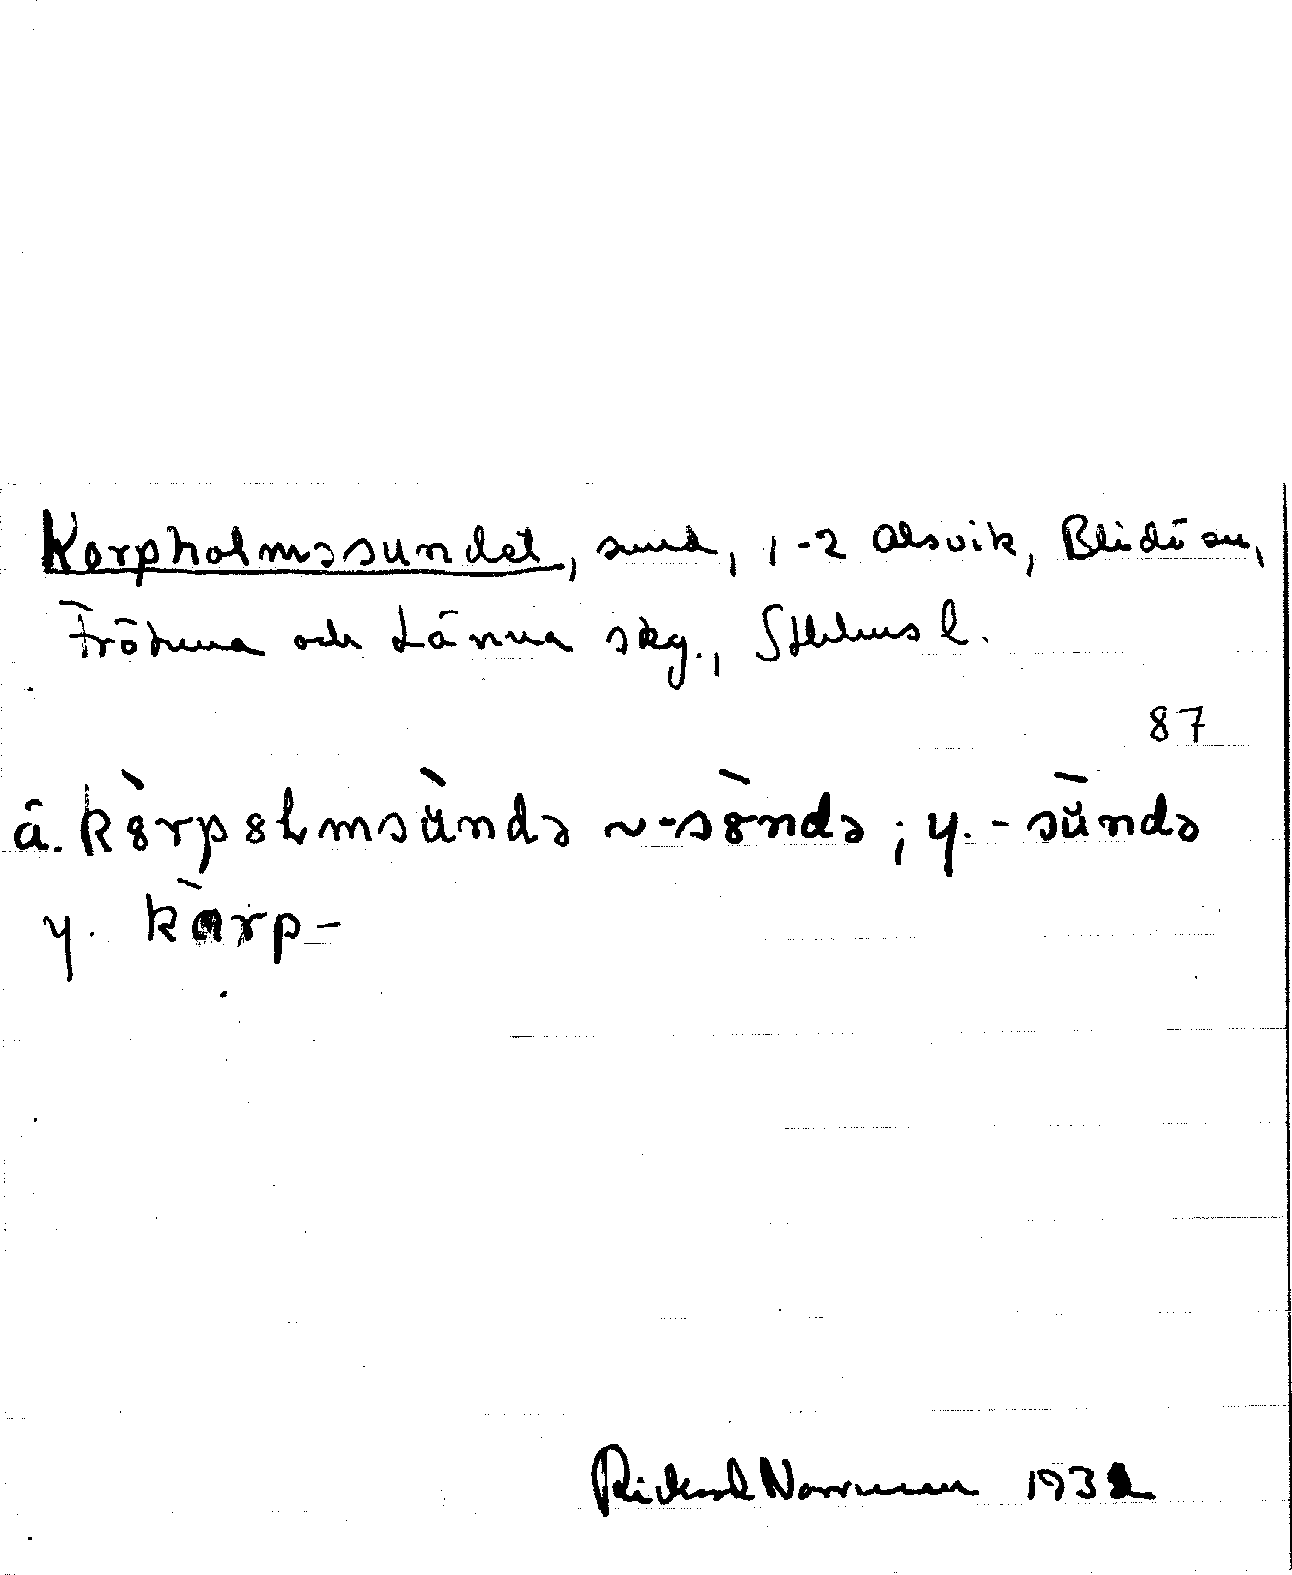 Korpholmssundet, sund, 1-2 Alsvik, Blidö sn,
Frötuna och Länna skg., Sthlms l.
87
ä. kòrpolmsùndə ~ -sòndə ; y. -sùndə
y. kàrp-
Rickard Norrman 1932